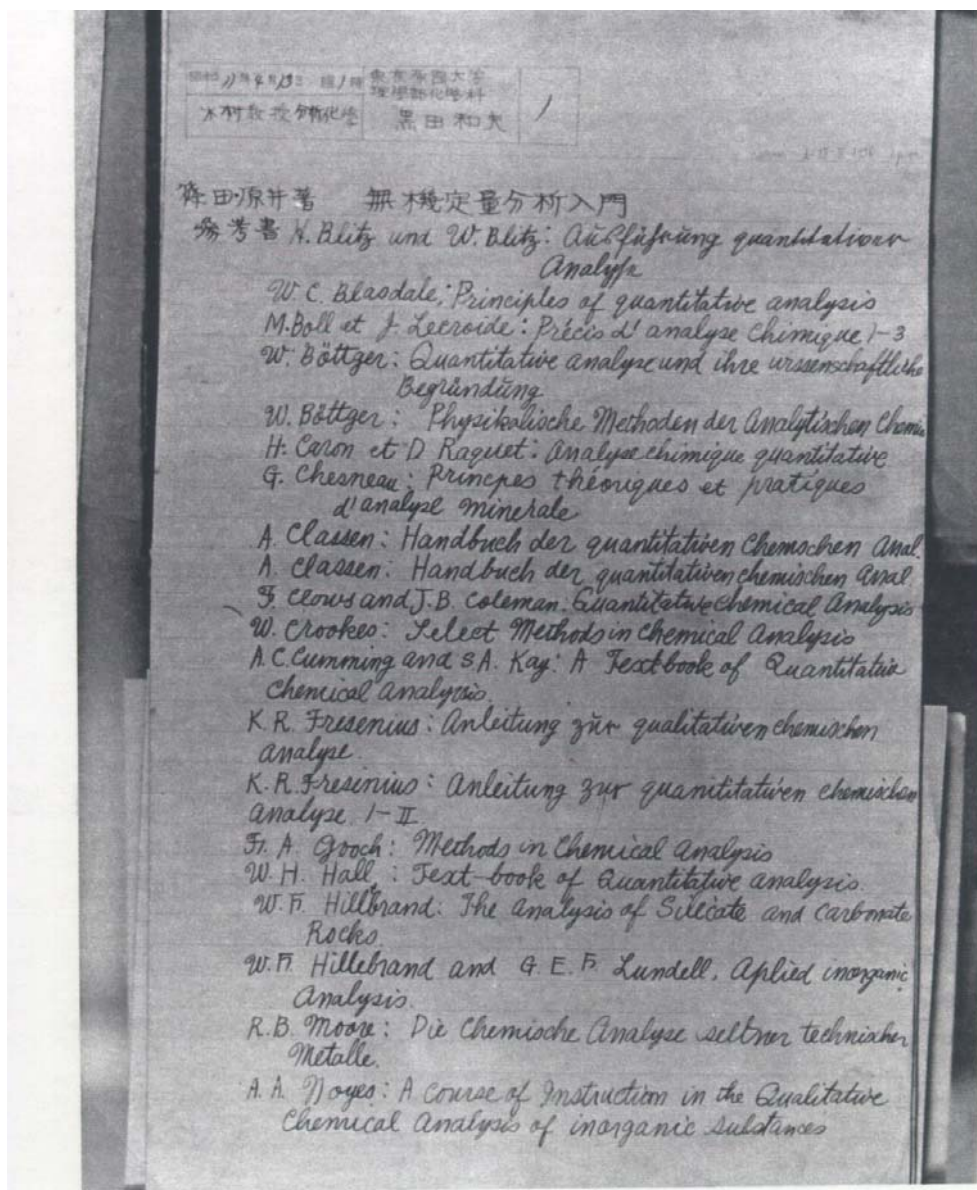 昭和11年4月13日 第1時 東京帝国大学
理学部化学科
木村教授分析化学 黒田和夫 1
篠田・原井著 無機定量分析入門
参考書 H. Blitz und W. Blitz: Ausführung quantitativer
Analyse
W. C. Blasdale; Principles of quantitative analysis
M. Boll et J. Leeroide: Précis d'analyse chimique 1-3
W. Böttger: Quantitative analyse und ihre wissenschaftliche
Begründung
W. Böttger: Physikalische Methoden der Analytischen Chemie
H. Caron et D Raquet: Analyse chimique quantitative
G. Chesneau: Principes théoriques et pratiques
d'analyse minérale
A. Classen: Handbuch der quantitativen Chemschen Anal.
A. Classen: Handbuch der quantitativen chemischen Anal
F. Clows and J. B. Coleman. Quantitatve Chemical Analysis
W. Crookes: Select Methods in Chemical Analysis
A. C. Cumming and S. A. Kay: A Textbook of Quantitative
Chemical Analysis.
K. R. Fresenius: Anleitung zur qualitativen chemischen
Analyse.
K. R. Fresinius: Anleitung zur quanititativen chemischen
Analyse. I-II
F. A. Gooch: Methods in Chemical Analysis
W. H. Hall: Text-book of Quantitative analysis.
W. F. Hillbrand: The Analysis of Silicate and Carbonate
Rocks.
W. F. Hillebrand and G. E. F. Lundell, Aplied inorganic
Analysis.
R. B. Moore: Die Chemische Analyse seltner technischer
Metalle.
A. A. Noyes: A course of Instruction in the Qualitative
Chemical Analysis of inorganic substances